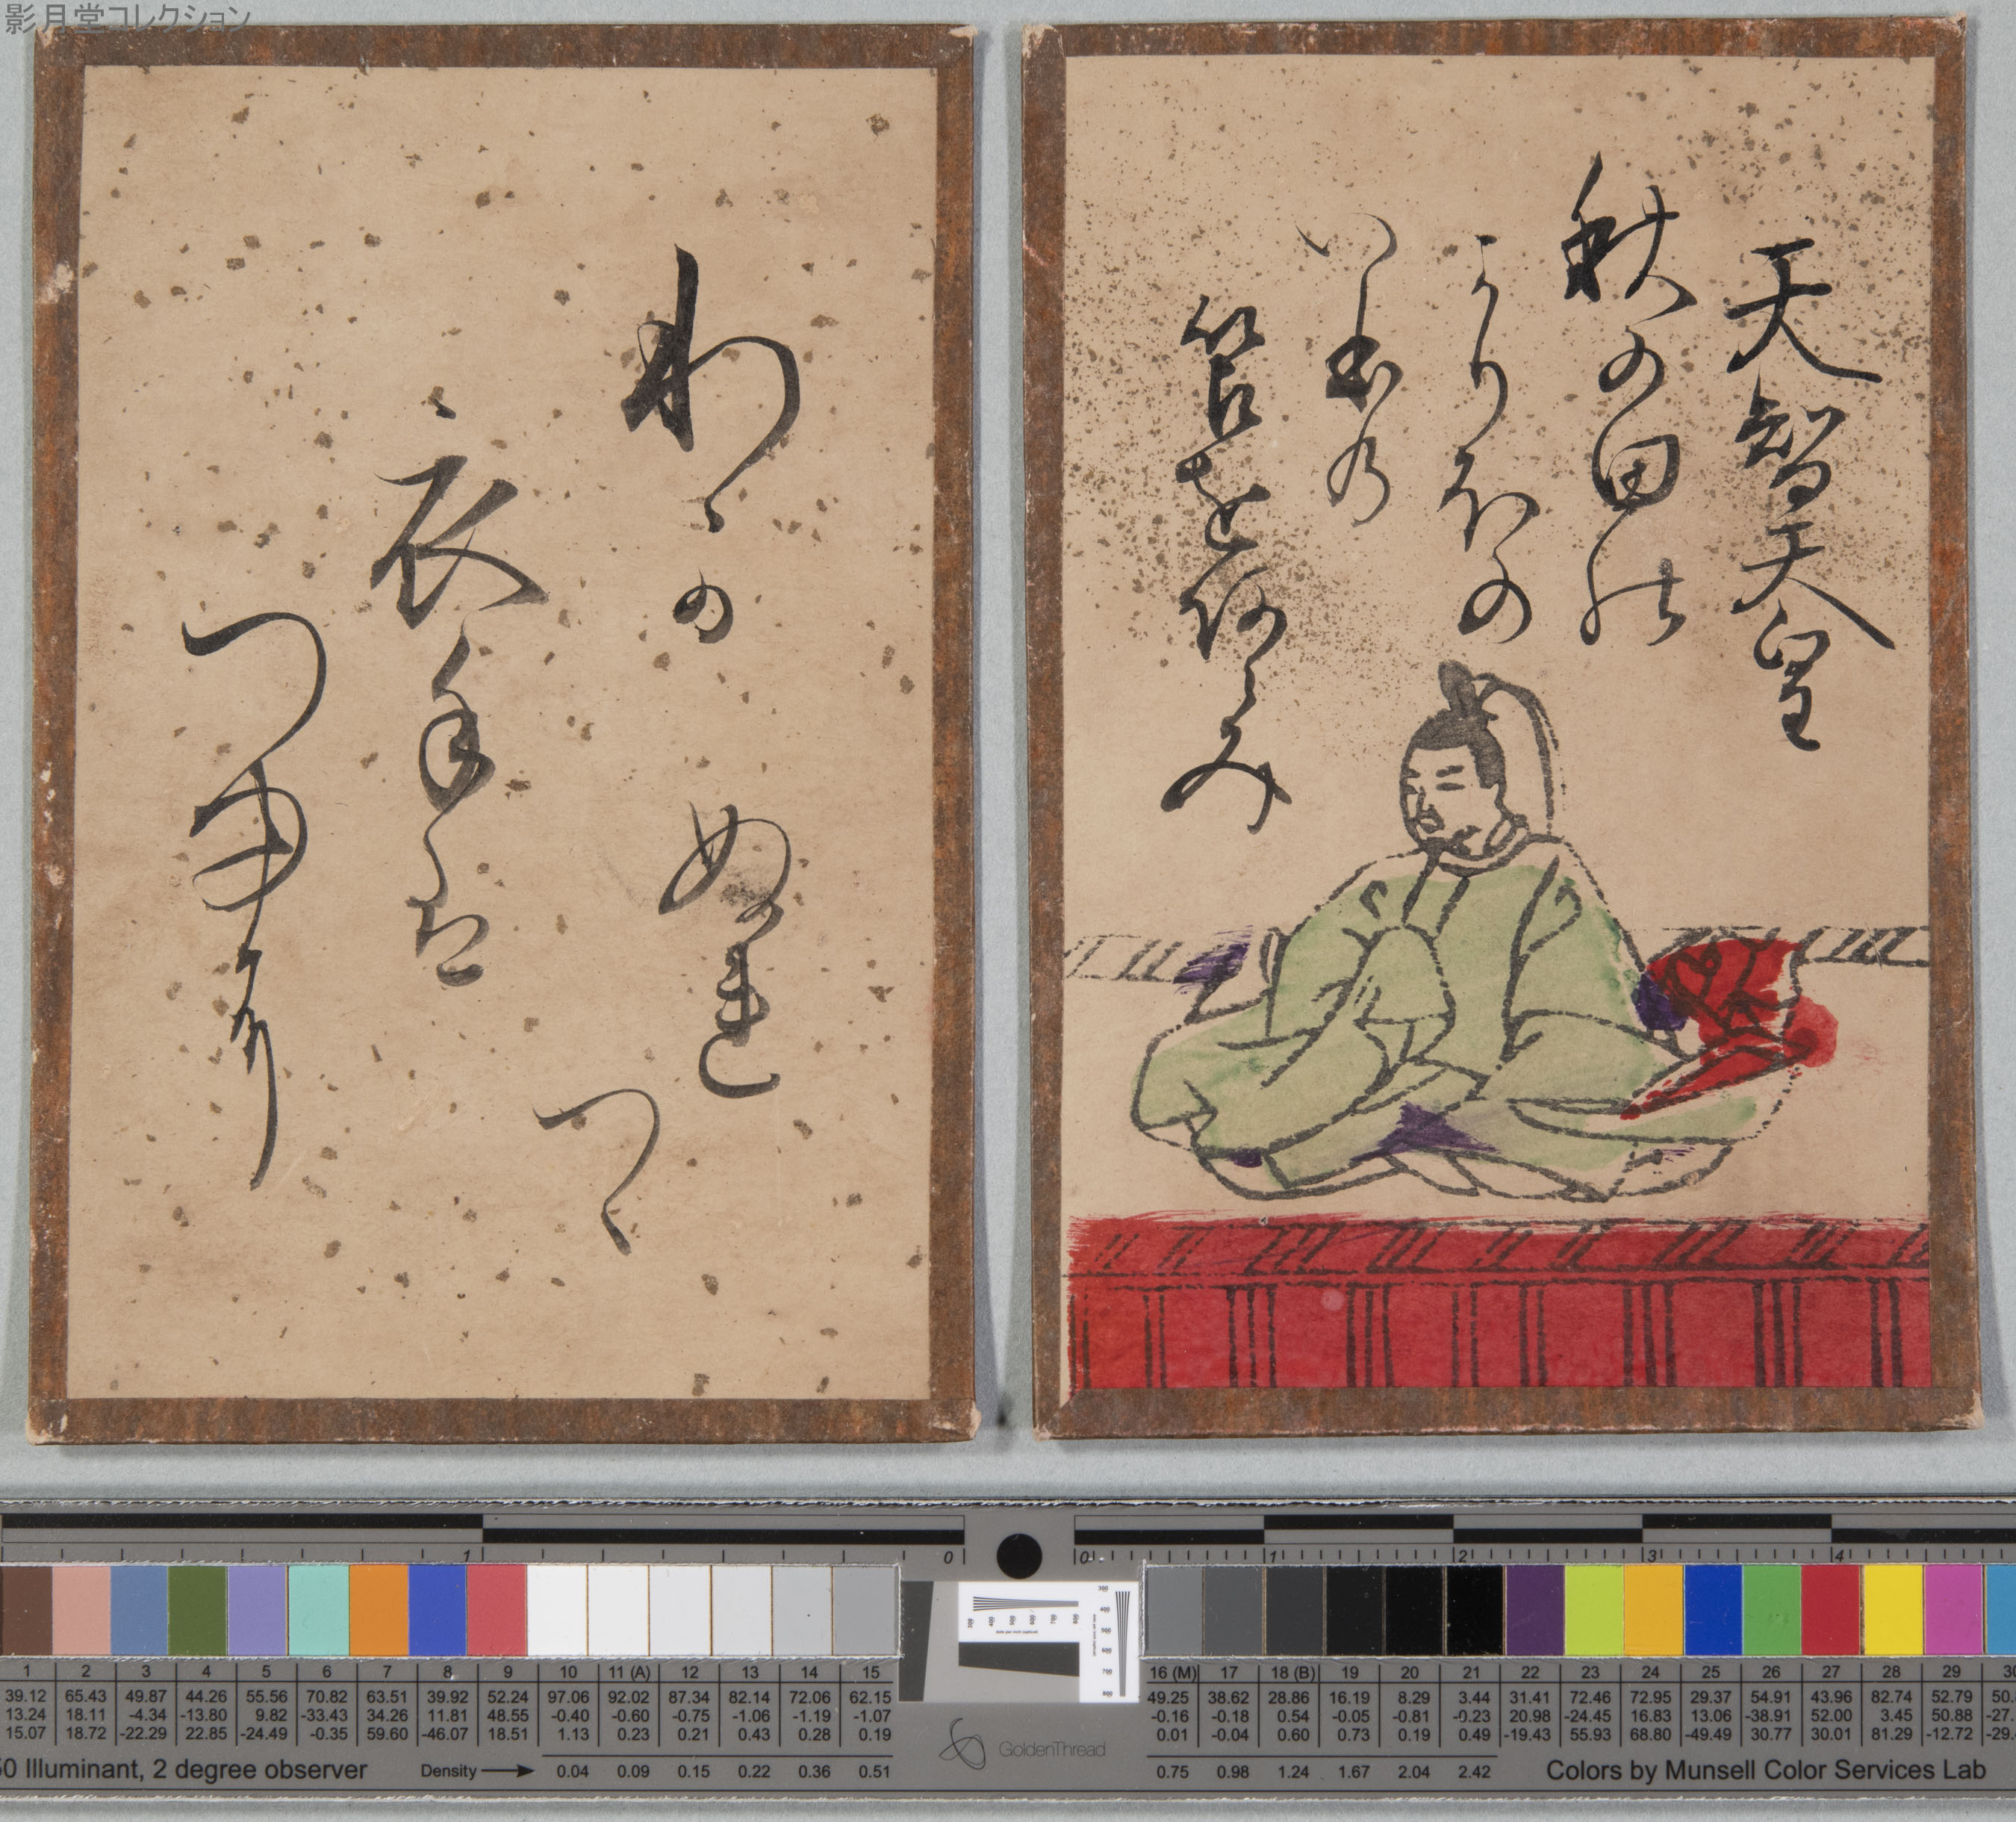 影月堂コレクション
天智天皇
秋の田の
かりほの
いほの
苫をあらみ
わか
衣手は
つゆに
ぬれ
つゝ
1 0
0 1 2 3 4
1 2 3 4 5 6 7 8 9 10 11 (A) 12 13 14 15
39.12 65.43 49.87 44.26 55.56 70.82 63.51 39.92 52.24 97.06 92.02 87.34 82.14 72.06 62.15
13.24 18.11 -4.34 -13.80 9.82 -33.43 34.26 11.81 48.55 -0.40 -0.60 -0.75 -1.06 -1.19 -1.07
15.07 18.72 -22.29 22.85 -24.49 -0.35 59.60 -46.07 18.51 1.13 0.23 0.21 0.43 0.28 0.19
Illuminant, 2 degree observer
Density 0.04 0.09 0.15 0.22 0.36 0.51
GoldenThread
16 (M) 17 18 (B) 19 20 21 22 23 24 25 26 27 28 29
49.25 38.62 28.86 16.19 8.29 3.44 31.41 72.46 72.95 29.37 54.91 43.96 82.74 52.79
-0.16 -0.18 0.54 -0.05 -0.81 -0.23 20.98 -24.45 16.83 13.06 -38.91 52.00 3.45 50.88
0.01 -0.04 0.60 0.73 0.19 0.49 -19.43 55.93 68.80 -49.49 30.77 30.01 81.29 -12.72
0.75 0.98 1.24 1.67 2.04 2.42
Colors by Munsell Color Services Lab